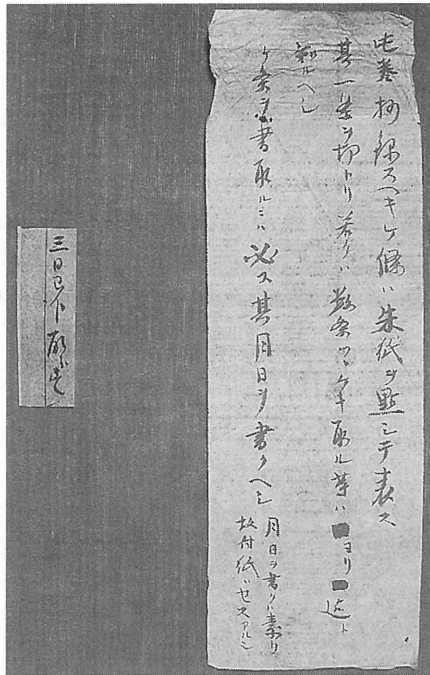 此巻抄録スヘキケ條ハ朱紙ヲ點シテ表ス
其一条ヲ切トリ若クハ数条ツヽケキ取ル等ハ■ヨリ■迄ト
知ルヘシ
ケ条ヲ書取ルニハ必ス其月日ヲ書クヘシ
月日ヲ書クハ素ヨリ
故付紙ハセスアルヘシ
三日